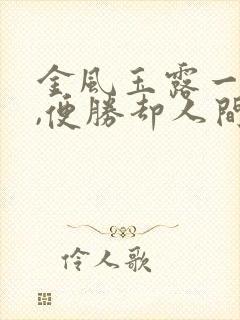 金風玉露一
,便勝却人間
伶人歌